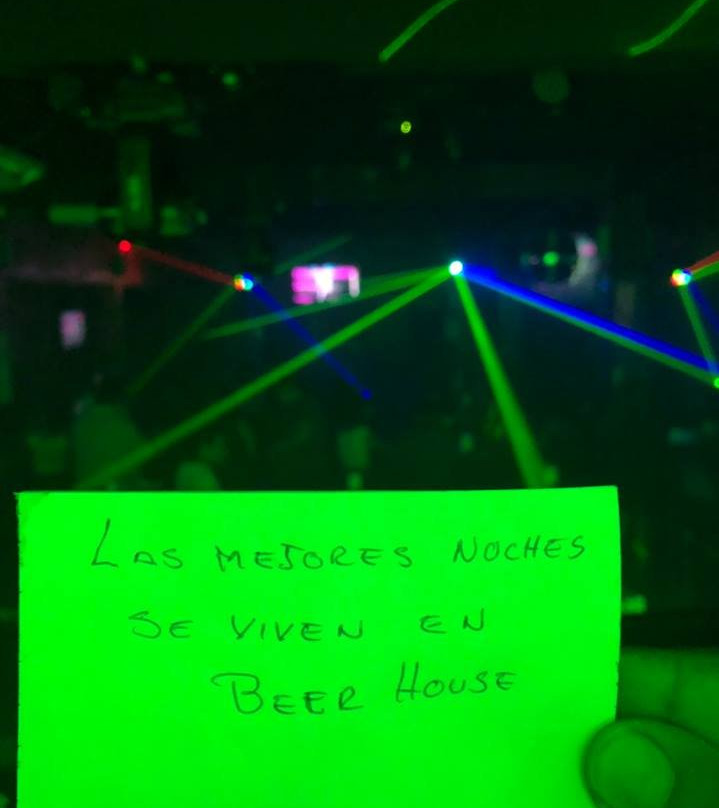 LAS MEJORES NOCHES
SE VIVEN EN
BEER HOUSE